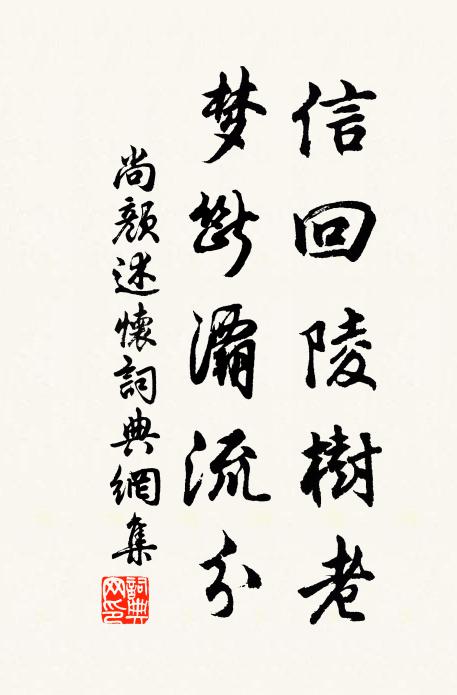 信回陵樹老
梦断灞流分
尚顔述懷詞典網集
詞典网印